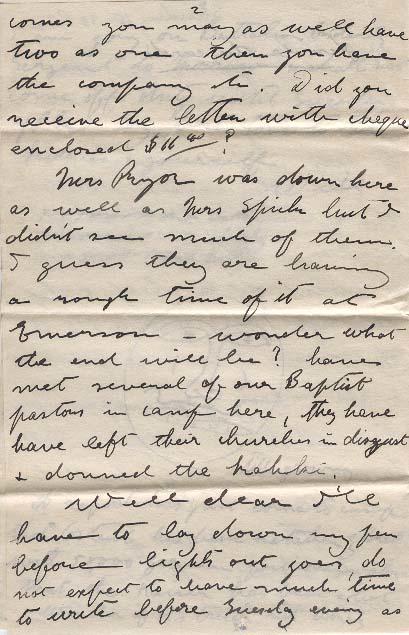 2
comes you may as well have
two as one then you have
the company etc. Did you
receive the letter with cheque
enclosed $11.00?
Mrs Pryor was down here
as well as Mrs but I
didn't see much of them.
I guess they are having
a rough time of it at
Emerson - wonder what
the end will be? have
met several of our Baptist
pastors in camp here, they have
have left their churches in disgust
& donned the khaki.
Well dear I'll
have to lay down my pen
before lights out goes, do
not expect to have much time
to write before Tuesday evening as